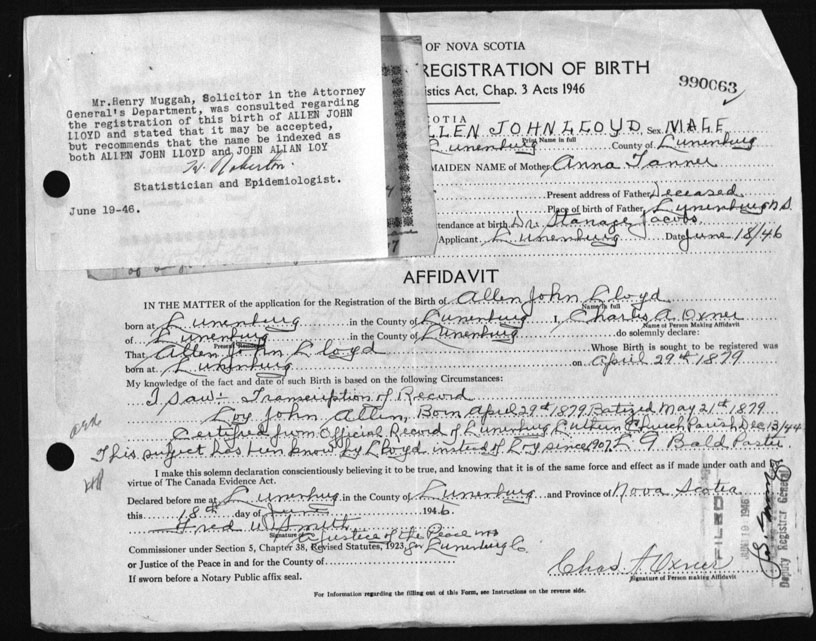 Mr.Henry Muggah, Solicitor in the Attorney
General's Department, was consulted regarding
the registration of this birth of ALLEN JOHN
LLOYD and stated that it may be accepted,
but recommends that the name be indexed as
both ALLEN JOHN LLOYD and JOHN ALLAN LOY
Statistician and Epidemiologist.
June 19-46.
OF NOVA SCOTIA
REGISTRATION OF BIRTH
istics Act, Chap. 3 Acts 1946
990063
SCOTIA
ALLEN JOHN LLOYD Sex MALE
Print Name in full
Lunenburg County of Lunenburg
MAIDEN NAME of Mother Anna Tanner
Present address of Father Deceased
Place of birth of Father Lunenburg N.S.
ttendance at birth Dr Stanage Jacobs
Applicant Lunenburg Date June 18/46
AFFIDAVIT
IN THE MATTER of the application for the Registration of the Birth of Allen John Lloyd
Name in full
born at Lunenburg in the County of Lunenburg I, Charles A. Oxner
Name of Person Making Affidavit
of Lunenburg in the County of Lunenburg do solemnly declare:
That Allen John Lloyd Whose Birth is sought to be registered was
born at Lunenburg on April 29th 1879
My knowledge of the fact and date of such Birth is based on the following Circumstances:
I Saw:- Transcription of Record
Loy John Allen, Born April 29th 1879 Batized May 21st 1879
Certified from Official Record of Lunenburg Luthern Church Parish Dec 13/44
This subject has been known by Lloyd instead of Loy since 1907. Bald Pastor
I make this solemn declaration conscientiously believing it to be true, and knowing that it is of the same force and effect as if made under oath and by
virtue of The Canada Evidence Act.
Declared before me at Lunenburg in the County of Lunenburg and Province of Nova Scotia
this 18th day of June 1946
Fred W Smith
Signature of
a Justice of the Peace
Commissioner under Section 5, Chapter 38, Revised Statutes, 1923, for Lunenburg Co.
or Justice of the Peace in and for the County of
If sworn before a Notary Public affix seal.
Chas A Oxner
Signature of Person making Affidavit
FILED
JUN 19 1946
Deputy Registrar General
For Information regarding the filling out of this Form, see Instructions on the reverse side.